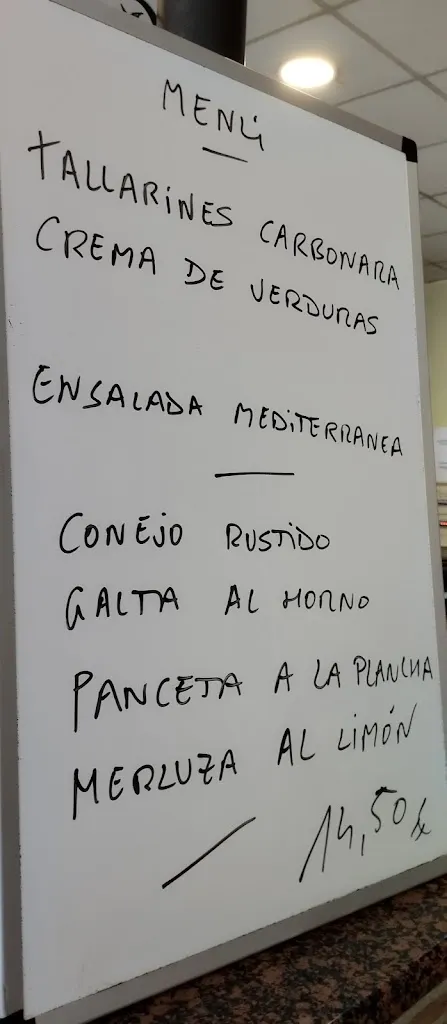 MENÚ
TALLARINES CARBONARA
CREMA DE VERDURAS
ENSALADA MEDITERRANEA
CONEJO RUSTIDO
GALTA AL HORNO
PANCETA A LA PLANCHA
MERLUZA AL LIMÓN
14,50 €